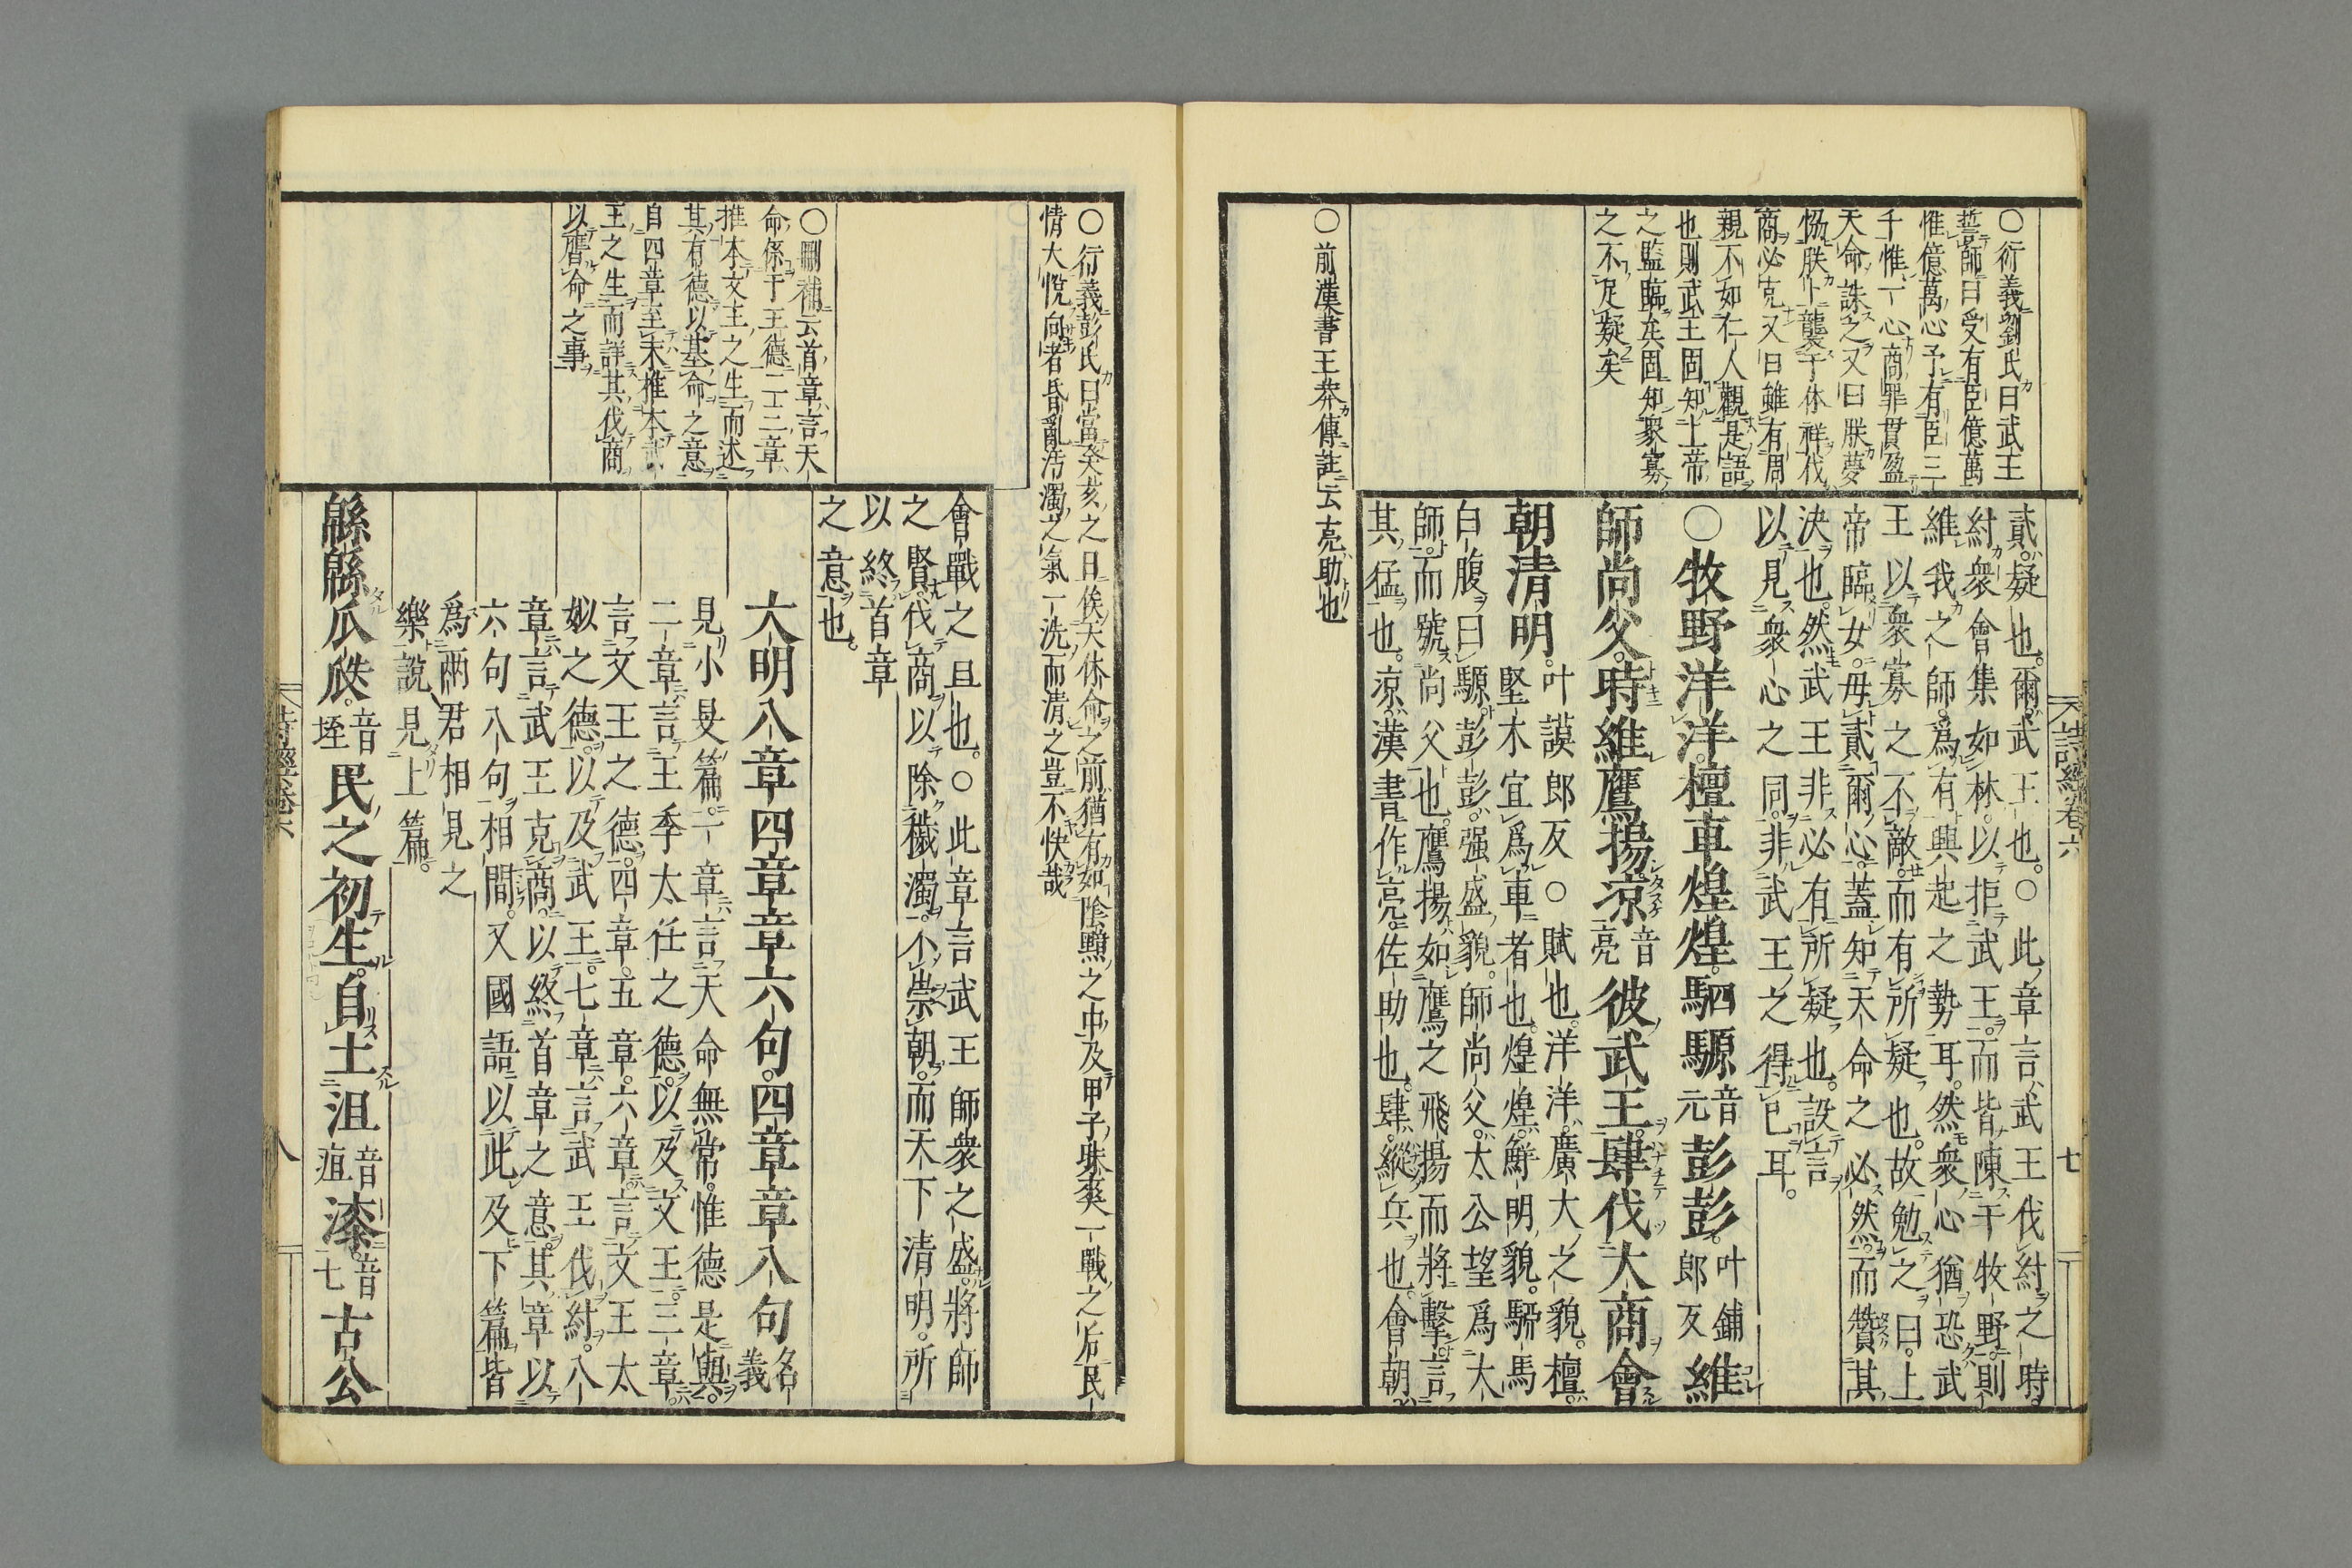 ○衍義劉氏曰武王
誓師曰受有臣億萬
惟億萬心予有臣三
千惟一心商罪貫盈
天命誅之又曰朕夢
恊朕卜襲于休祥伐
商必克又曰雖有周
親不如仁人觀是語
也則武王固知上帝
之監臨矣固知衆寡
之不足疑矣
○前漢書王莽傳註云亮助也
詩經卷六
七
貳疑也。爾武王也。○此章言武王伐紂之時。
紂衆會集如林。以拒武王。而皆陳于牧野。則
維我之師。爲有興起之勢耳。然衆心猶恐武
王以衆寡之不敵。而有所疑也。故勉之曰。上
帝臨女。毋貳爾心。蓋知天命之必然。而贊其
決也。然武王非必有所疑也。設言
以見衆心之同。非武王之得已耳。
○牧野洋洋。檀車煌煌。駟騵音元彭彭。叶鋪郎反維
師尚父。時維鷹揚。凉音亮彼武王。肆伐大商。會
朝清明。叶謨郎反○賦也。洋洋。廣大之貌。檀。
堅木宜爲車者也。煌煌。鮮明貌。駵馬
白腹曰騵。彭彭。强盛貌。師尚父。太公望爲大
師。而號尚父也。鷹揚。如鷹之飛揚而將擊。言
其猛也。凉。漢書作亮。佐助也。肆。縱兵也。會朝。
○衍義彭氏曰當癸亥之日俟天休命之前猶有如陰曀之中及甲子昧爽一戰之后民
情大悅向者昏亂汚濁之氣一洗而清之豈不快哉
○刪補云首章言天
命係于王德二三章
推本文王之生而述
其有德以基命之意
自四章至末推本武
王之生而詳其伐商
以膺命之事
會戰之旦也。○此章言武王師衆之盛。將師
之賢。伐商以除穢濁。不崇朝而天下清明。所
以終首章
之意也。
大明八章四章章六句。四章章八句名義
見小旻篇。一章言天命無常。惟德是與。
二章言王季太任之德。以及文王。三章
言文王之德。四章。五章。六章。言文王太
姒之德。以及武王。七章言武王伐紂。八
章言武王克商。以終首章之意。其章以
六句八句相間。又國語以此及下篇皆
爲兩君相見之
樂說見上篇。
緜緜瓜瓞。音垤民之初生。自土沮音疽漆。音七古公
詩經卷六
八